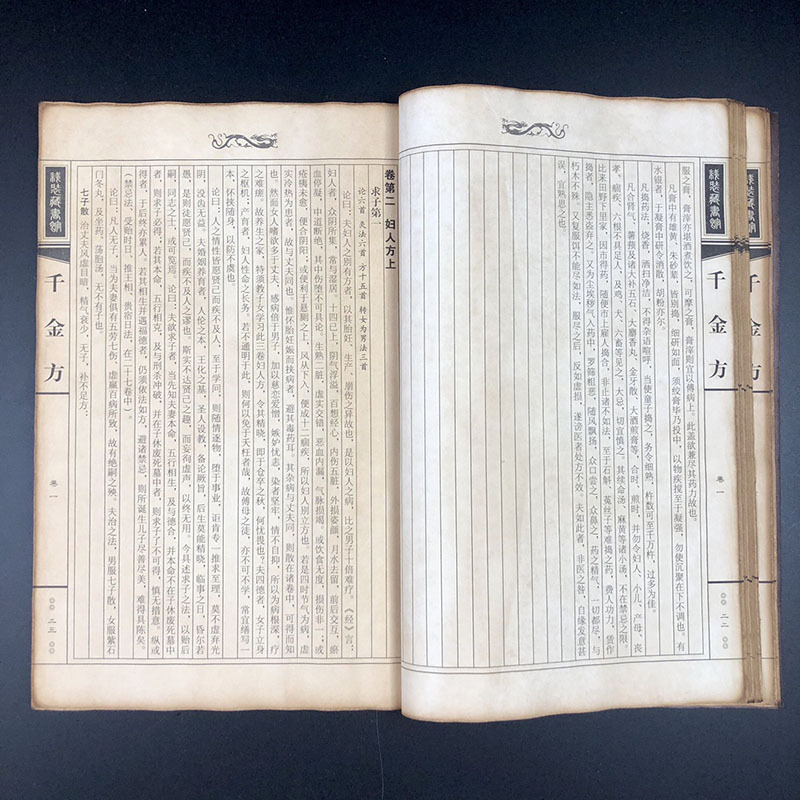 线装藏书馆
千金方
卷一
千金方
卷一
二二
服之膏，膏滓亦堪酒煮饮之，可摩之膏，膏滓则宜以傅病上。此盖欲兼尽其药力故也。
凡膏中有雄黄、朱砂辈，皆别捣，细研如面，须绞膏毕乃投中，以物疾搅至于凝强，勿使沉聚在下不调也。有
水银者，于凝膏中研令消散，胡粉亦尔。
凡捣药法，烧香，洒扫净洁，不得杂语喧呼，当使童子捣之，务令细熟，杵数可至千万杵，过多为佳。
凡合肾气、薯蓣及诸大补五石、大麝香丸、金牙散、大酒煎膏等，合时，煎时，并勿令妇人、小儿、产母、丧
孝、痼疾、六根不具足人，及鸡、犬、六畜等见之，大忌，切宜慎之。其续命汤、麻黄等诸小汤，不在禁忌之限。
比来田野下里家，因市得药，随便市上雇人捣合，非止诸不如法，至于石斛、菟丝子等难捣之药，费人功力，赁作
捣者，隐主悉盗弃之。又为尘埃秽气入药中，罗筛粗恶，随风飘扬，众口尝之，众鼻之，药之精气，一切都尽，与
朽木不殊。又复服饵不能尽如法，服尽之后，反加虚损，遂谤医者处方不效。夫如此者，非医之咎，自缘发意甚
误，宜熟思之也。
卷第二 妇人方上
求子第一
论六首 灸法六首 方十五首 转女为男法三首
论曰：夫妇人之别有方者，以其胎妊、生产、崩伤之异故也，是以妇人之病，比之男子十倍难疗。《经》言：
妇人者，众阴所集，常与湿居，十四已上，阴气浮溢，百想经心，内伤五脏，外损姿颜，月水去留，前后交互，瘀
血停凝，中道断绝，其中伤堕不可具论，生熟二脏，虚实交错，恶血内漏，气脉损竭，或饮食无度，损伤非一；或
疮痍未愈，便合阴阳，或便利于悬厕之上，风从下入，便成十二痼疾，所以妇人别立方也。若是四时节气为病，虚
实冷热为患者，故与丈夫同也。惟怀胎妊娠而挟病者，避其毒药耳。其杂病与丈夫同，则散在诸卷中，可得而知
也。然而女人嗜欲多于丈夫，感病倍于男子，加以慈恋爱憎，嫉妒忧恚，染者坚牢，情不自抑，所以为病根深，疗
之难瘥。故养生之家，特须教子女学习此三卷妇人方，令其精晓，即于仓卒之秋，何忧畏也？夫四德者，女子立身
之枢机；产育者，妇人性命之长务，若不通明于此，则何以免于夭枉者哉，故傅母之徒，亦不可不学，常宜缮写一
本，怀挟随身，以防不虞也。
论曰：人之情性皆愿贤己而疾不及人，至于学问，则随情逐物，堕于事业，讵肯专一推求至理，莫不虚弃光
阴，没齿无益。夫婚姻养育者，人伦之本，王化之基，圣人设教，备论厥旨，后生莫能精晓，临事之日，昏尔若
愚，是则徒愿贤己，而疾不及人之谬也。斯实不达贤己之趣，而妄徇虚声，以终无用。今具述求子之法，以贻后
嗣，同志之士，或可览焉。论曰：夫欲求子者，当先知夫妻本命，五行相生，及与德合，并本命不在子休废死墓中
者，则求子必得；若其本命，五行相克，及与刑杀冲破，并在子休废死墓中者，则求子了不可得，慎无措意。纵或
得者，于后终亦累人。若其相生并遇福德者，仍须依法如方，避诸禁忌，则所诞生儿子尽善尽美，难得具陈矣。
（禁忌法，受胎时日，推王相、贵宿日法，在二十七卷中）。
论曰：凡人无子，当为夫妻俱有五劳七伤、虚羸百病所致，故有绝嗣之殃。夫治之法，男服七子散，女服紫石
门冬丸，及坐药，荡胞汤，无不有子也。
七子散 治丈夫风虚目暗，精气衰少，无子，补不足方：
线装藏书馆
千金方
卷一
二三